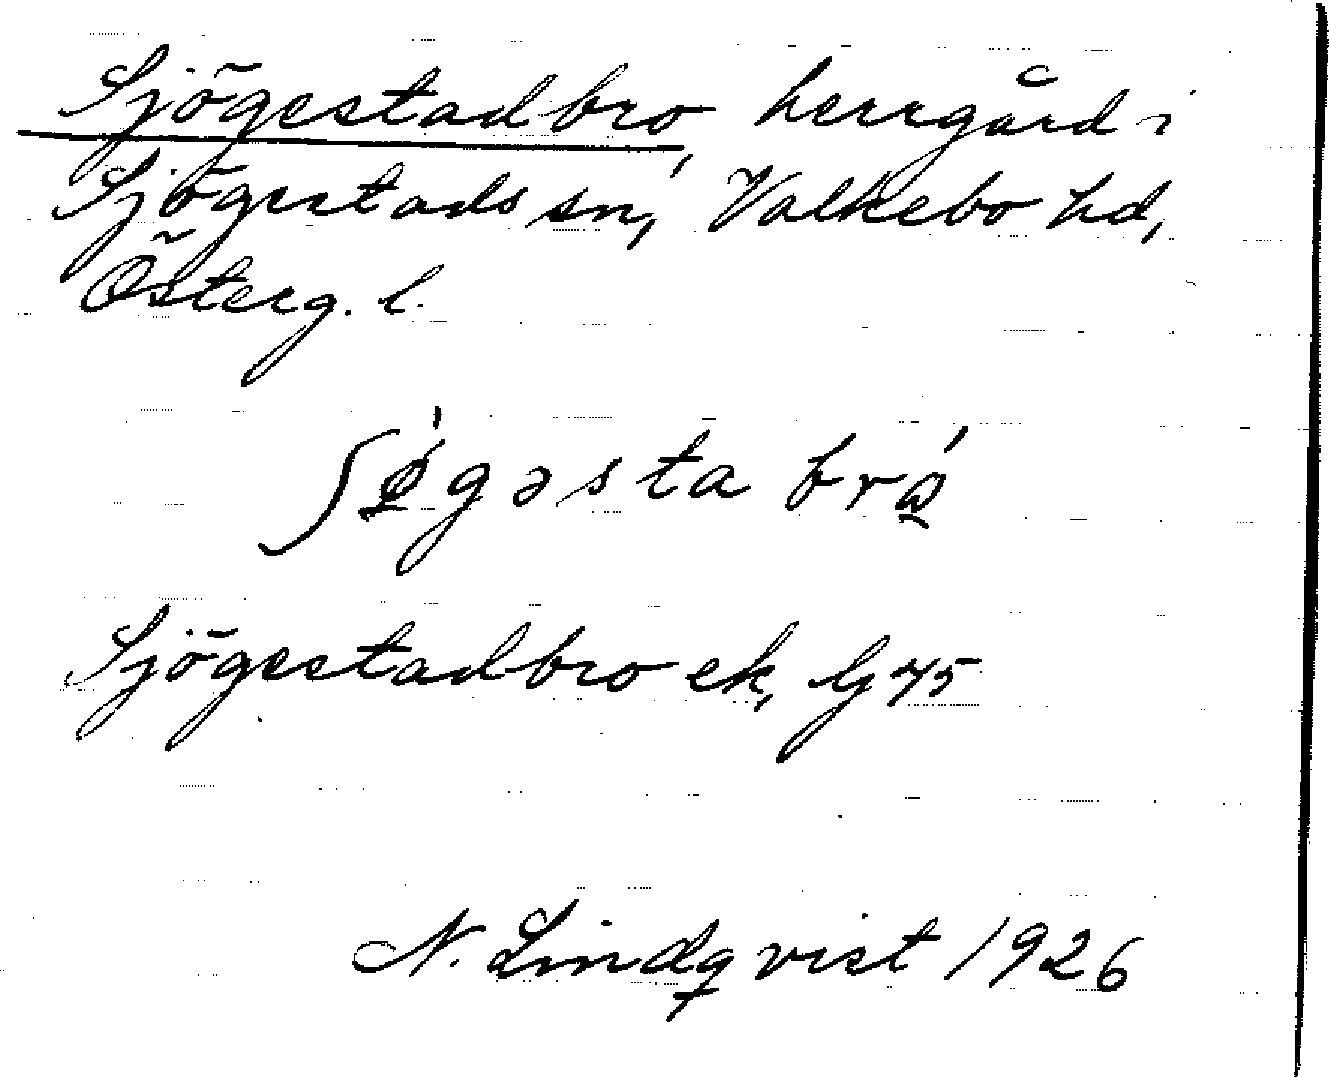 Sjögestadbro, herrgård i
Sjögestads sn, Valkebo hd,
Österg. l.
ʃǿgəsta brá̰
Sjögestadbro ek, G 45
N. Lindqvist 1926